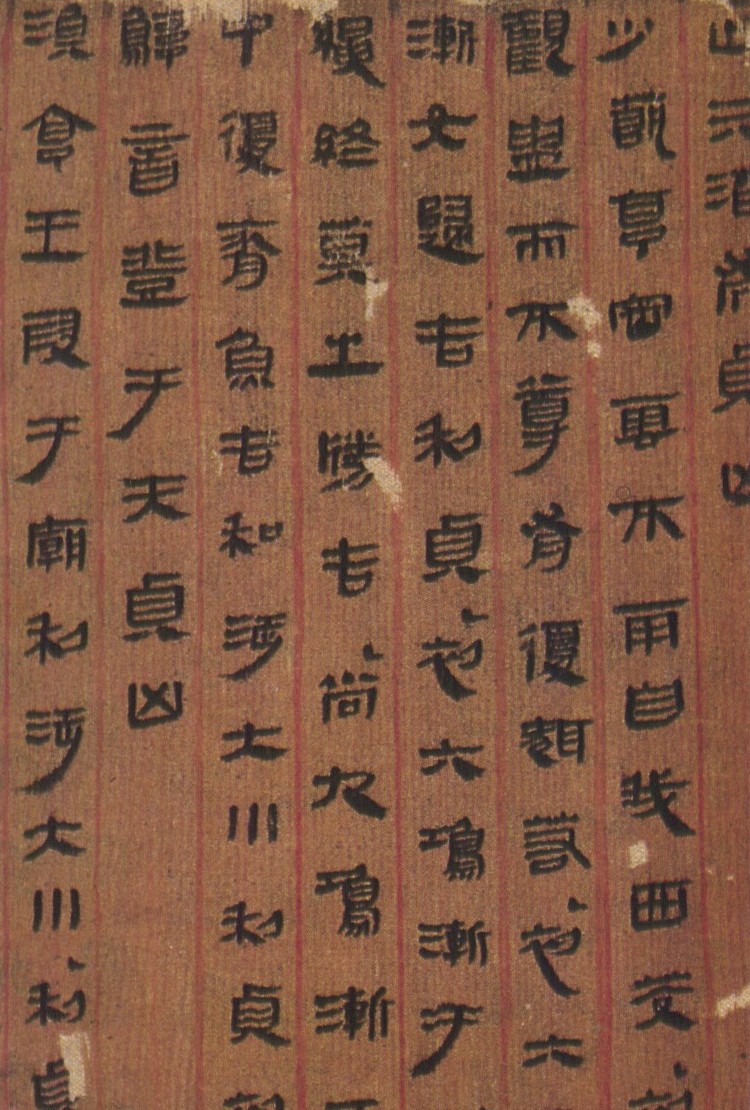 貞凶
少亨雲不雨自我西茭
觀盥而不尊有復若初六
漸女歸吉利貞初六鳿漸于
終莫之勝吉尚九鳿漸于
中復魚吉和涉大川利貞初
音登于天貞凶
渙亨王叚于廟利涉大川利貞